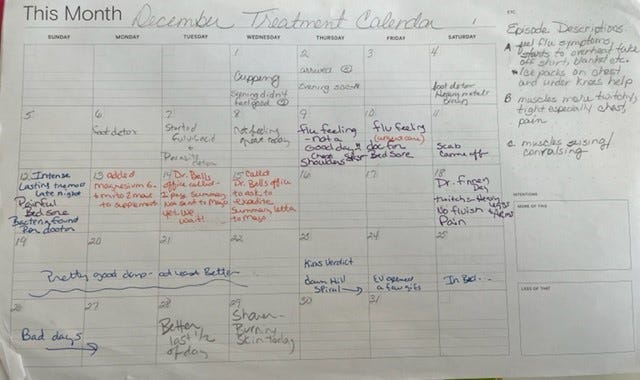 This Month
December Treatment Calendar
SUNDAY MONDAY TUESDAY WEDNESDAY THURSDAY FRIDAY SATURDAY
1
Cupping
Evening didn't
feel good
2
Evening
3
4
foot detox
Heavy metals
5
6
foot detox
7
Started
Fulvic acid
+
detox
8
Not feeling
great today
9
flu feeling
- not a
Good day
Chest
Shoulders
10
flu feeling
(urgent care)
doctor
Bed Sore
11
Scab
Came off
12 Intense
Lasting
Late Night
Painful
Bed sore
Bacteria found
Per doctor
13 added
magnesium
to supplements
14 Dr. Bells
office called -
Summary
Not sent to Mayo
yet. We
wait!
15 Called
Dr. Bells office
to ask to
expedite
Summary letter
to Mayo
16
17
18
Dr. Finnen
Day
twitchs - Heavy
legs
arms
No fluish
Pain
19
20
21
22
23
Kims Verdict
down Hill
Spiral →
24
opened
a few gifts
25
In Bed...
Pretty good days - at least Better -
26
Bad days
→
27
28
Better
last 1/2
of day
29
Shawn -
Burning
Skin today
30
31
ETC
Episode Descriptions
A flu symptoms,
starts to overheat take
off shirt, blanket etc.
Ice packs on chest
and under knees help
B muscles more twitchy,
tight especially chest,
pain
C. muscles seizing/
convulsing
INTENTIONS
MORE OF THIS
LESS OF THAT